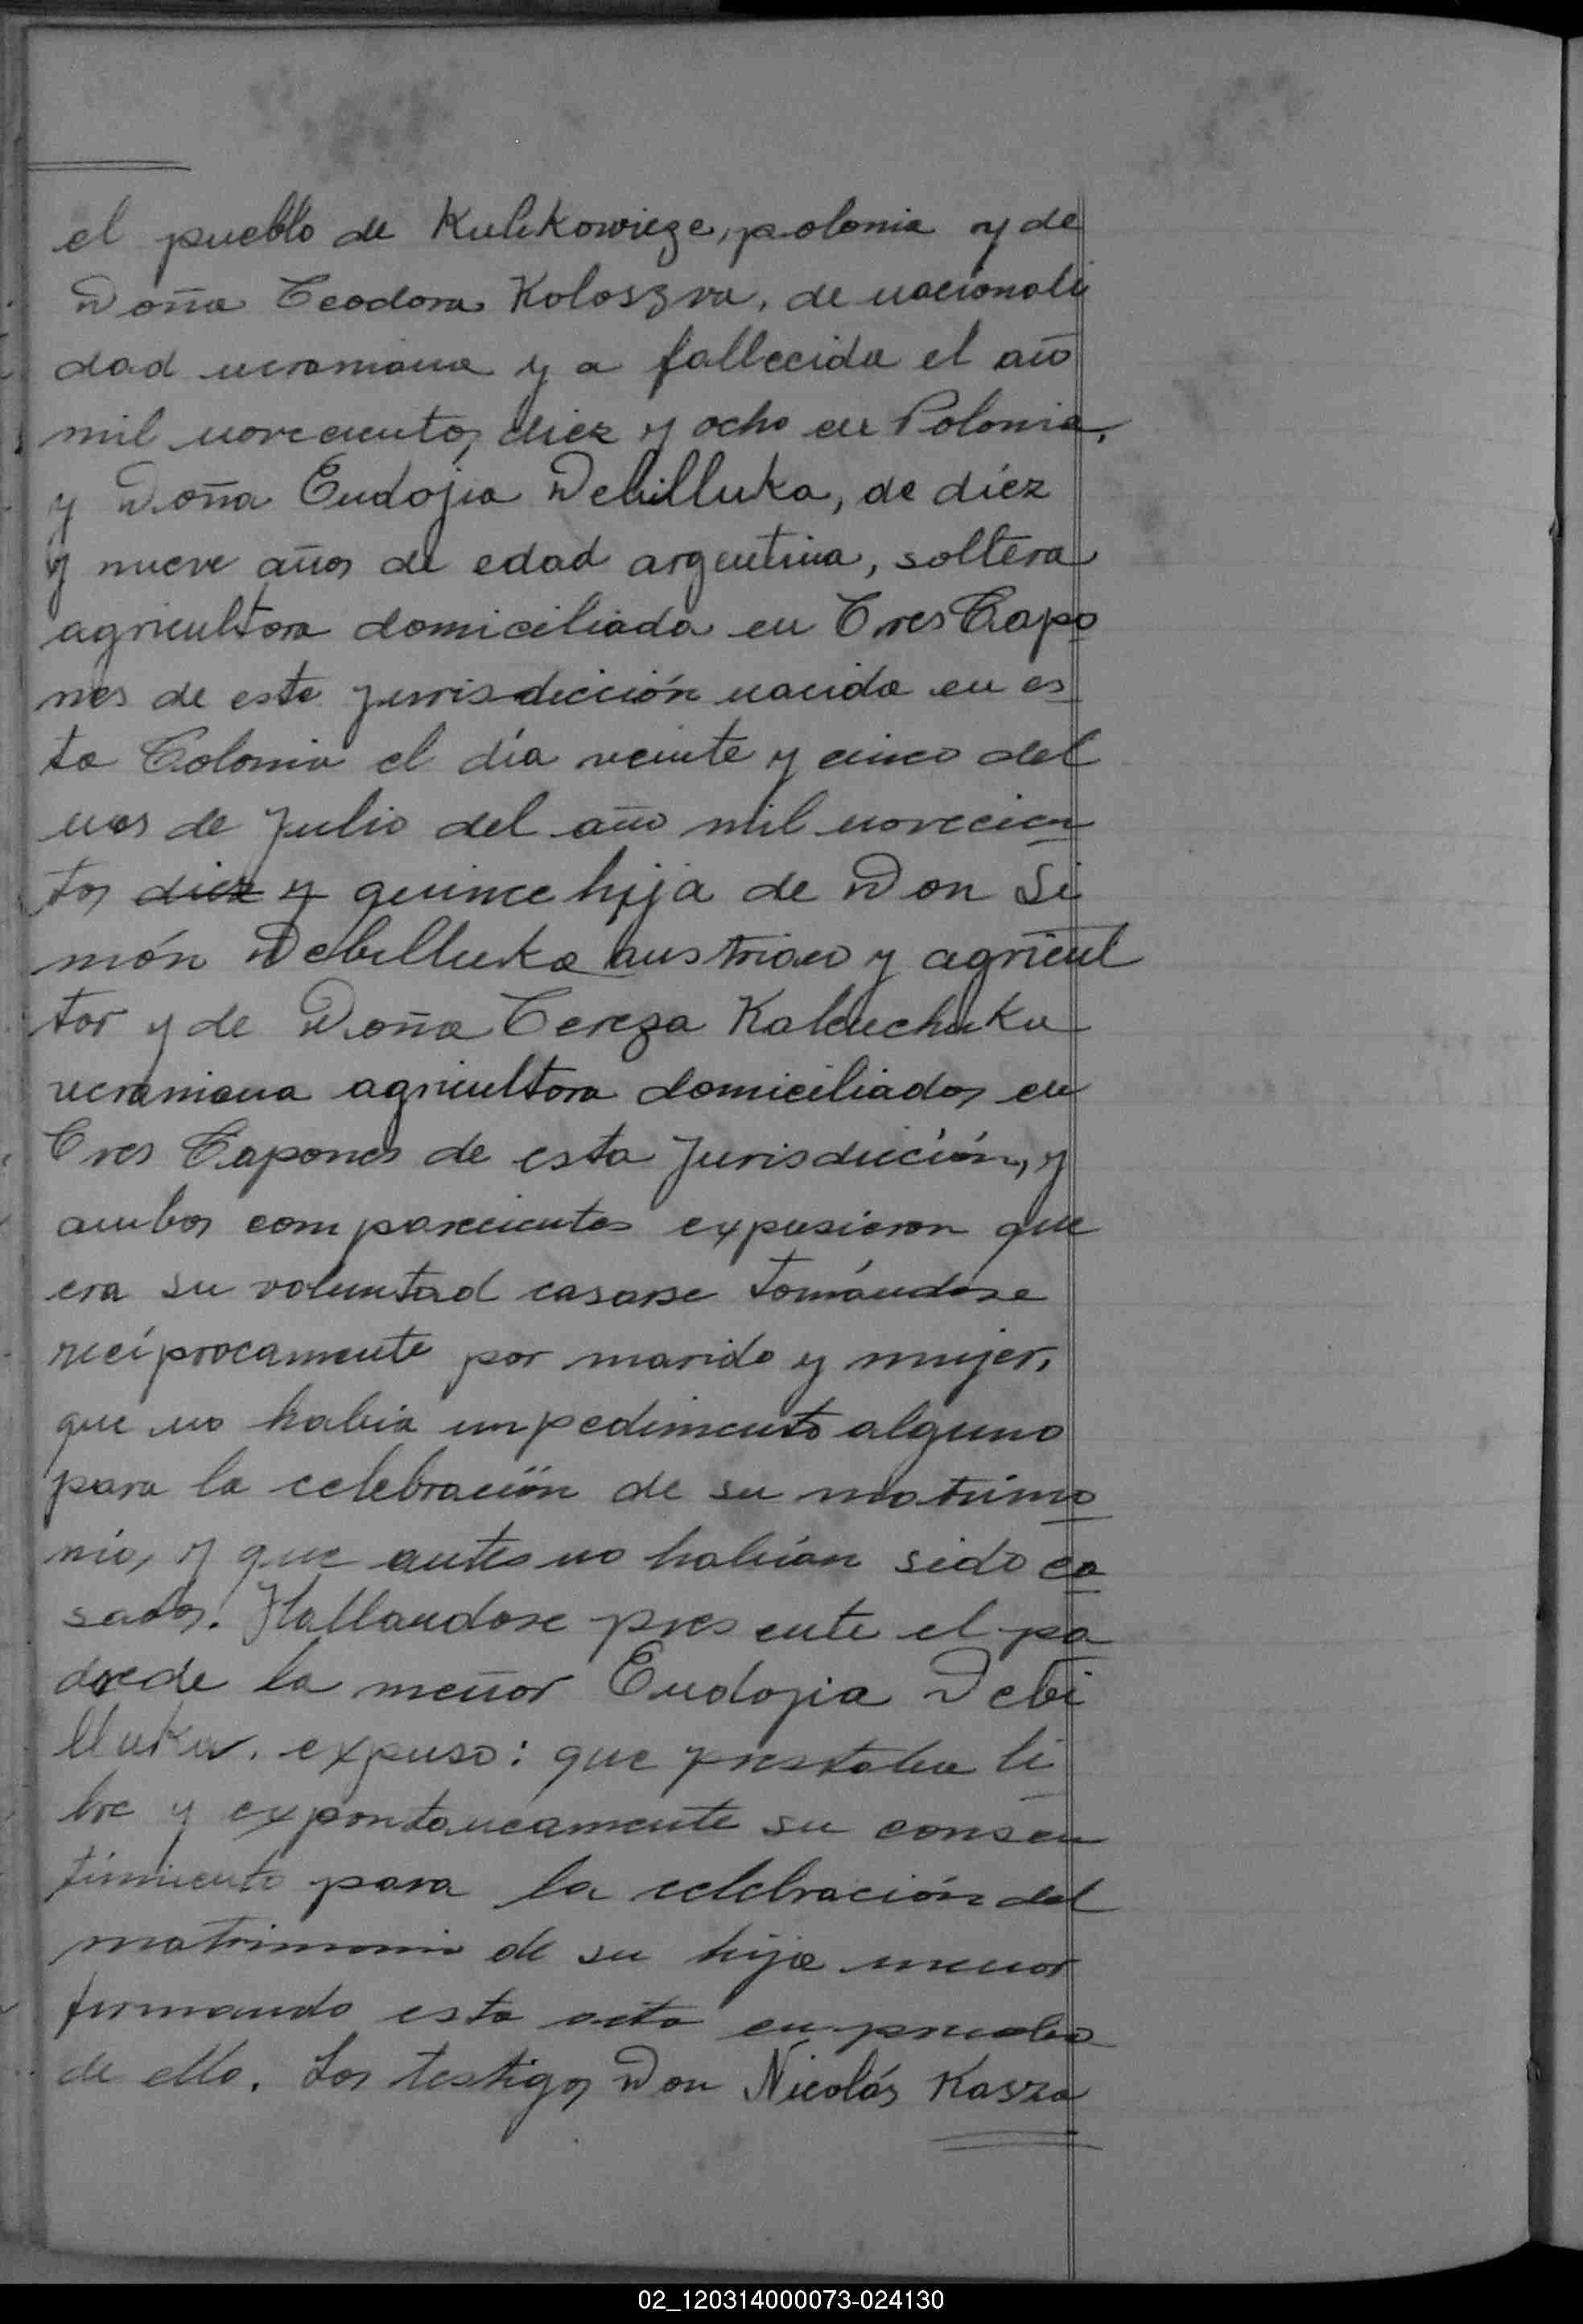 el pueblo de Kulikowicze, polonia y de
Doña Teodora Koloszva, de nacionali
dad ucraniana y a fallecida el año
mil novecientos diez y ocho en Polonia,
y Doña Eudojia Debilluka, de diéz
y nueve años de edad argentina, soltera
agricultora domiciliada en Tres Capo
nes de esta jurisdicción nacida en es
ta Colonia el día veinte y cinco del
mes de Julio del año mil novecien
tos diez y quince hija de Don Si
món Debilluka austriaco y agricul
tor y de Doña Tereza Kaleuchuka
ucraniana agricultora domiciliados en
Tres Capones de esta Jurisdicción, y
ambos comparecientes expusieron que
era su voluntad casarse tomándose
recíprocamente por marido y mujer,
que no habia impedimento alguno
para la celebración de su matrimo
nio, y que antes no habían sido ca
sados. Hallandose presente el pa
dre de la menor Eudojia Debi
lluka. expuso: que prestaba li
bre y expontaneamente su consen
timiento para la celebración del
matrimonio de su hija menor
firmando esta acta en prueba
de ello. Los testigos Don Nicolás Kasza
02_120314000073-024130